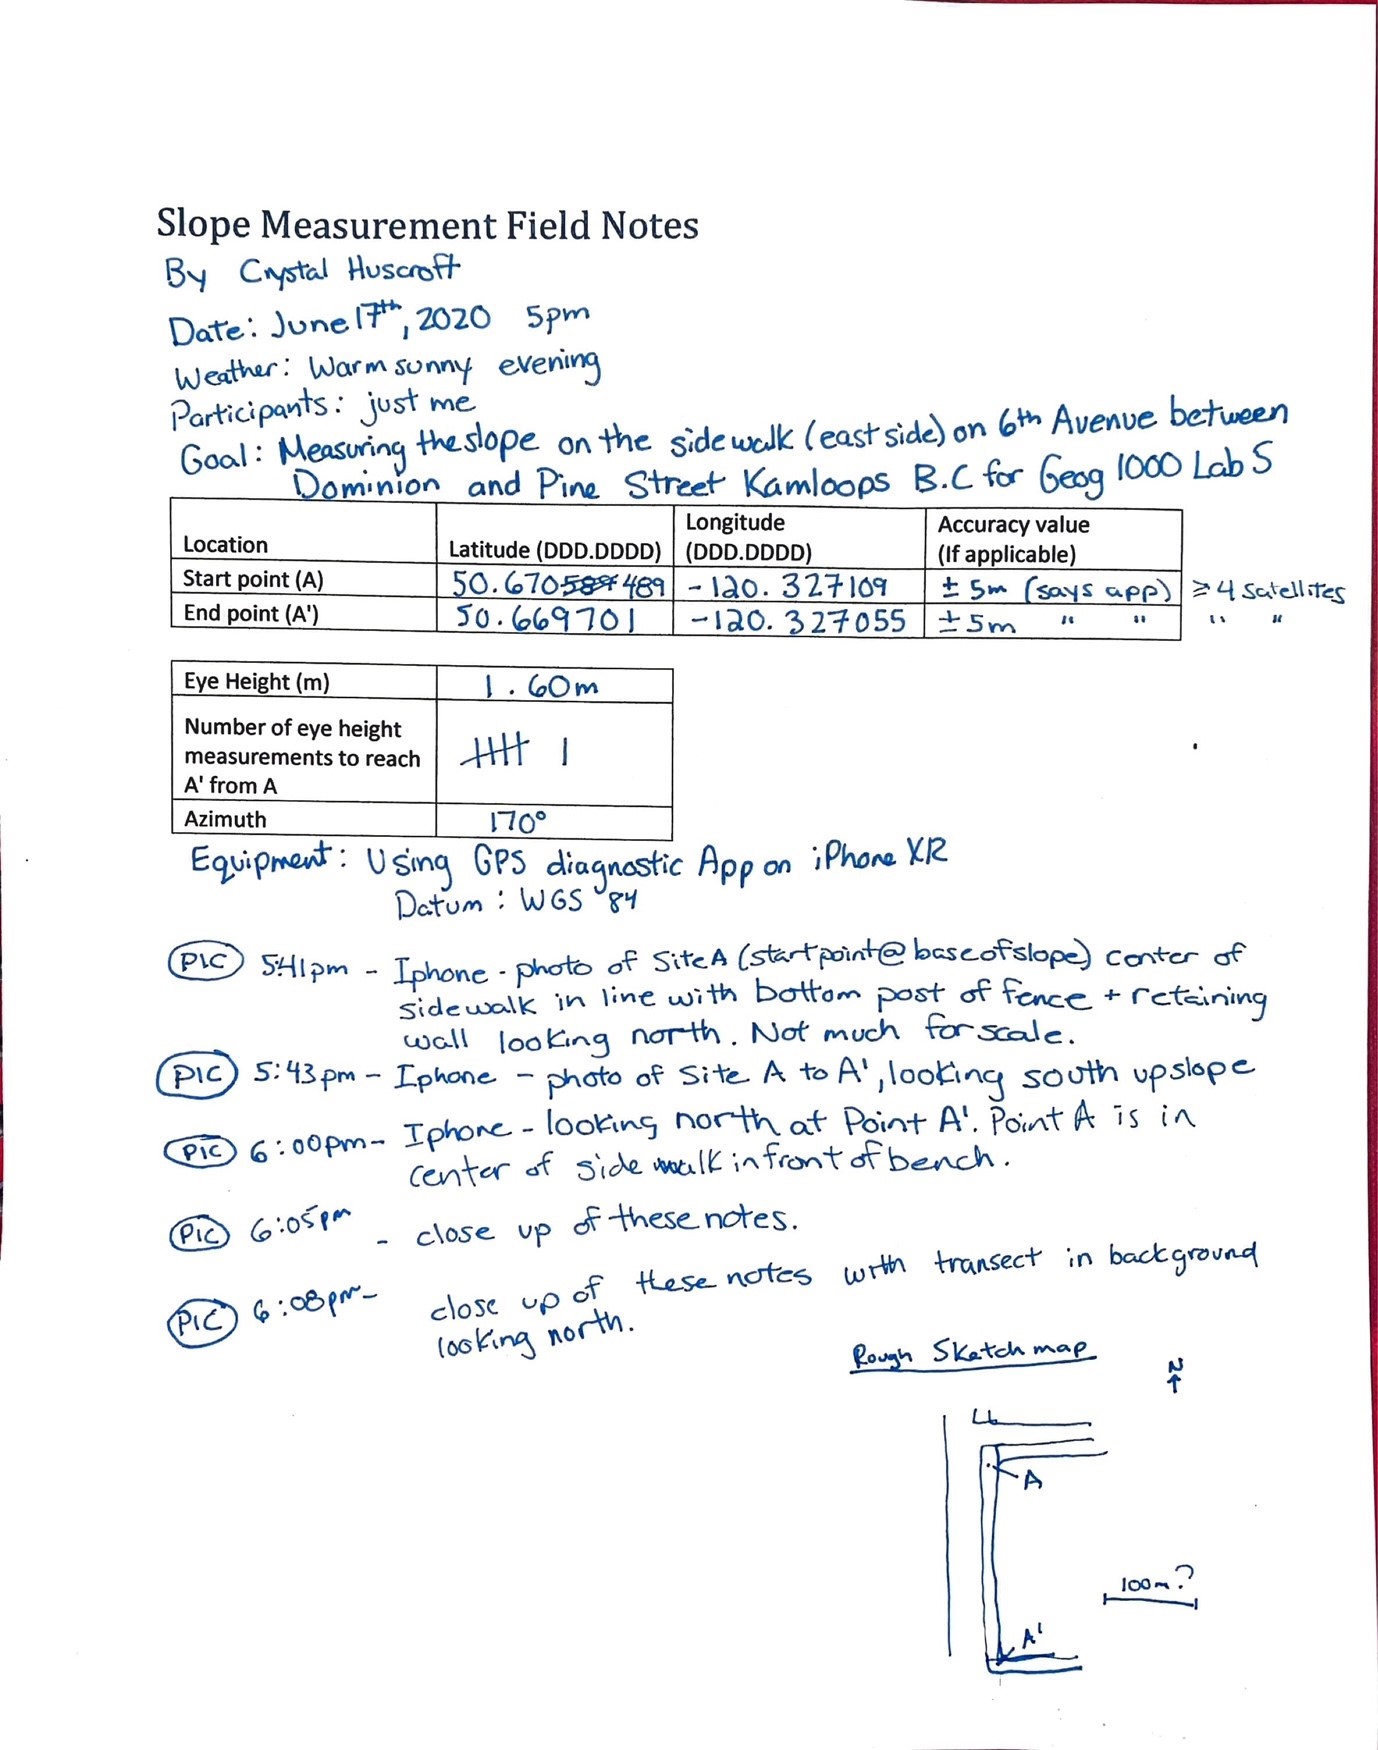 Slope Measurement Field Notes
By Crystal Huscroft
Date: June 17th, 2020 5pm
Weather: Warm sunny evening
Participants: just me
Goal: Measuring the slope on the sidewalk (east side) on 6th Avenue between
Dominion and Pine Street Kamloops B.C for Geog 1000 Lab 5
Location Latitude (DDD.DDDD) Longitude (DDD.DDDD) Accuracy value (If applicable)
Start point (A) 50.670489 -120.327109 ± 5m (says app) ≥4 satellites
End point (A') 50.669701 -120.327055 ±5m " " " "
Eye Height (m) 1.60m
Number of eye height
measurements to reach
A' from A
𝍸 |
Azimuth 170°
Equipment: Using GPS diagnostic App on iPhone XR
Datum: WGS '84
PIC 5:41pm - Iphone - photo of Site A (start point @ base of slope) center of
sidewalk in line with bottom post of fence + retaining
wall looking north. Not much for scale.
PIC 5:43pm - Iphone - photo of Site A to A', looking south upslope
PIC 6:00pm - Iphone - looking north at Point A'. Point A is in
center of side walk in front of bench.
PIC 6:05pm - close up of these notes.
PIC 6:08pm - close up of these notes with transect in background
looking north.
Rough Sketch map
N
A
100m?
A'